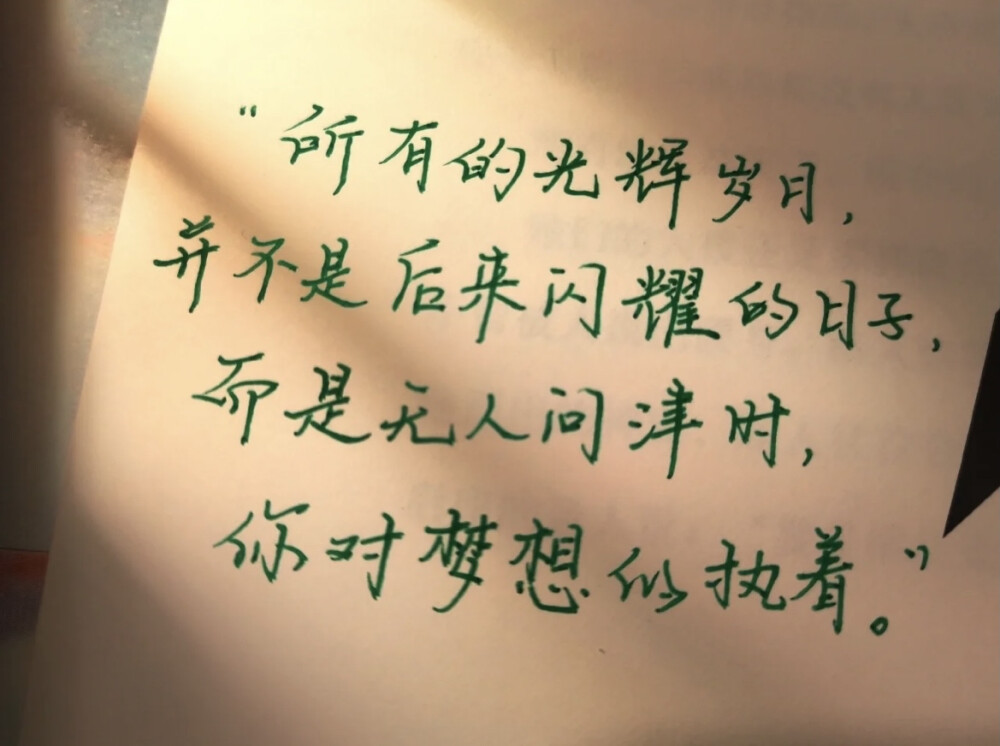 “所有的光辉岁月，
并不是后来闪耀的日子，
而是无人问津时，
你对梦想的执着。”